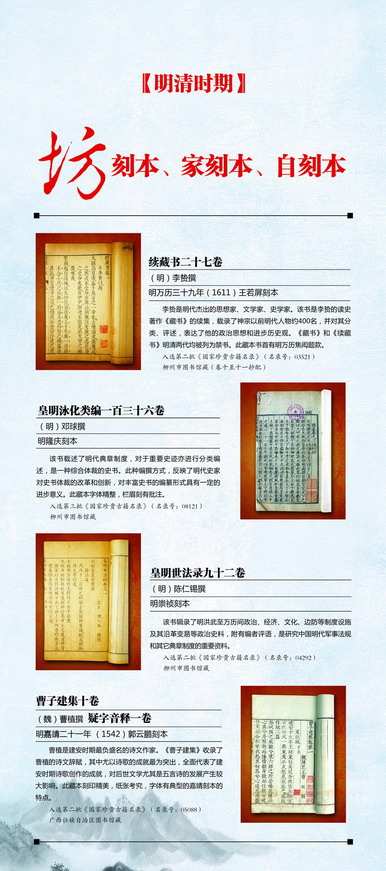 【明清时期】
坊刻本、家刻本、自刻本
续藏书二十七卷
（明）李贽撰
明万历三十九年（1611）王若屏刻本
李贽是明代杰出的思想家、文学家、史学家。该书是李贽的读史
著作《藏书》的续集，载录了神宗以前明代人物约400名，并对其分
类、评述，表达了他的政治思想和进步历史观。《藏书》和《续藏
书》明清两代均被列为禁书。此藏本书首有明万历焦竑题款。
入选第二批《国家珍贵古籍名录》（名录号：03521）
柳州市图书馆藏（卷十至十一抄配）
皇明泳化类编一百三十六卷
（明）邓球撰
明隆庆刻本
该书载述了明代典章制度，对于重要史迹亦进行分类编
述，是一种综合体裁的史书。此种编撰方式，反映了明代史家
对史书体裁的改革和创新，对丰富史书的编纂形式具有一定的
进步意义。此藏本字体精整，栏眉刻有批注。
入选第三批《国家珍贵古籍名录》（名录号：08121）
柳州市图书馆藏
皇明世法录九十二卷
（明）陈仁锡撰
明崇祯刻本
该书辑录了明洪武至万历间政治、经济、文化、边防等制度设施
及其沿革变易等政治史料，附有编者评语，是研究中国明代军事法规
和其它典章制度的重要资料。
入选第二批《国家珍贵古籍名录》（名录号：04292）
柳州市图书馆藏
曹子建集十卷
（魏）曹植撰 疑字音释一卷
明嘉靖二十一年（1542）郭云鹏刻本
曹植是建安时期最负盛名的诗文作家。《曹子建集》收录了
曹植的诗文辞赋，其中尤以诗歌的成就最为突出，全面代表了建
安时期诗歌创作的成就，对后世文学尤其是五言诗的发展产生较
大影响。此藏本刻印精美，纸张考究，字体有典型的嘉靖刻本的
特点。
入选第二批《国家珍贵古籍名录》（名录号：05088）
广西壮族自治区图书馆藏